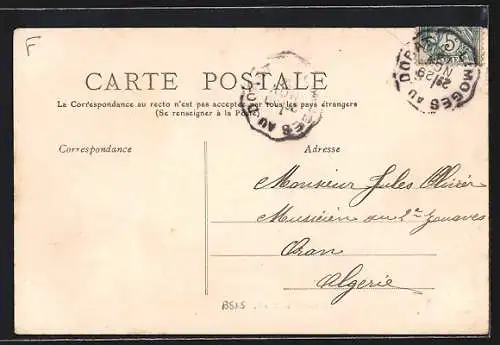 F
5
LIMOGES AU DORAT
CARTE POSTALE
La Correspondance au recto n'est pas acceptée par tous les pays étrangers
(Se renseigner à la Poste)
Correspondance
Adresse
Monsieur Jules Olivier
Musicien au 2e Zouaves
Oran
Algerie